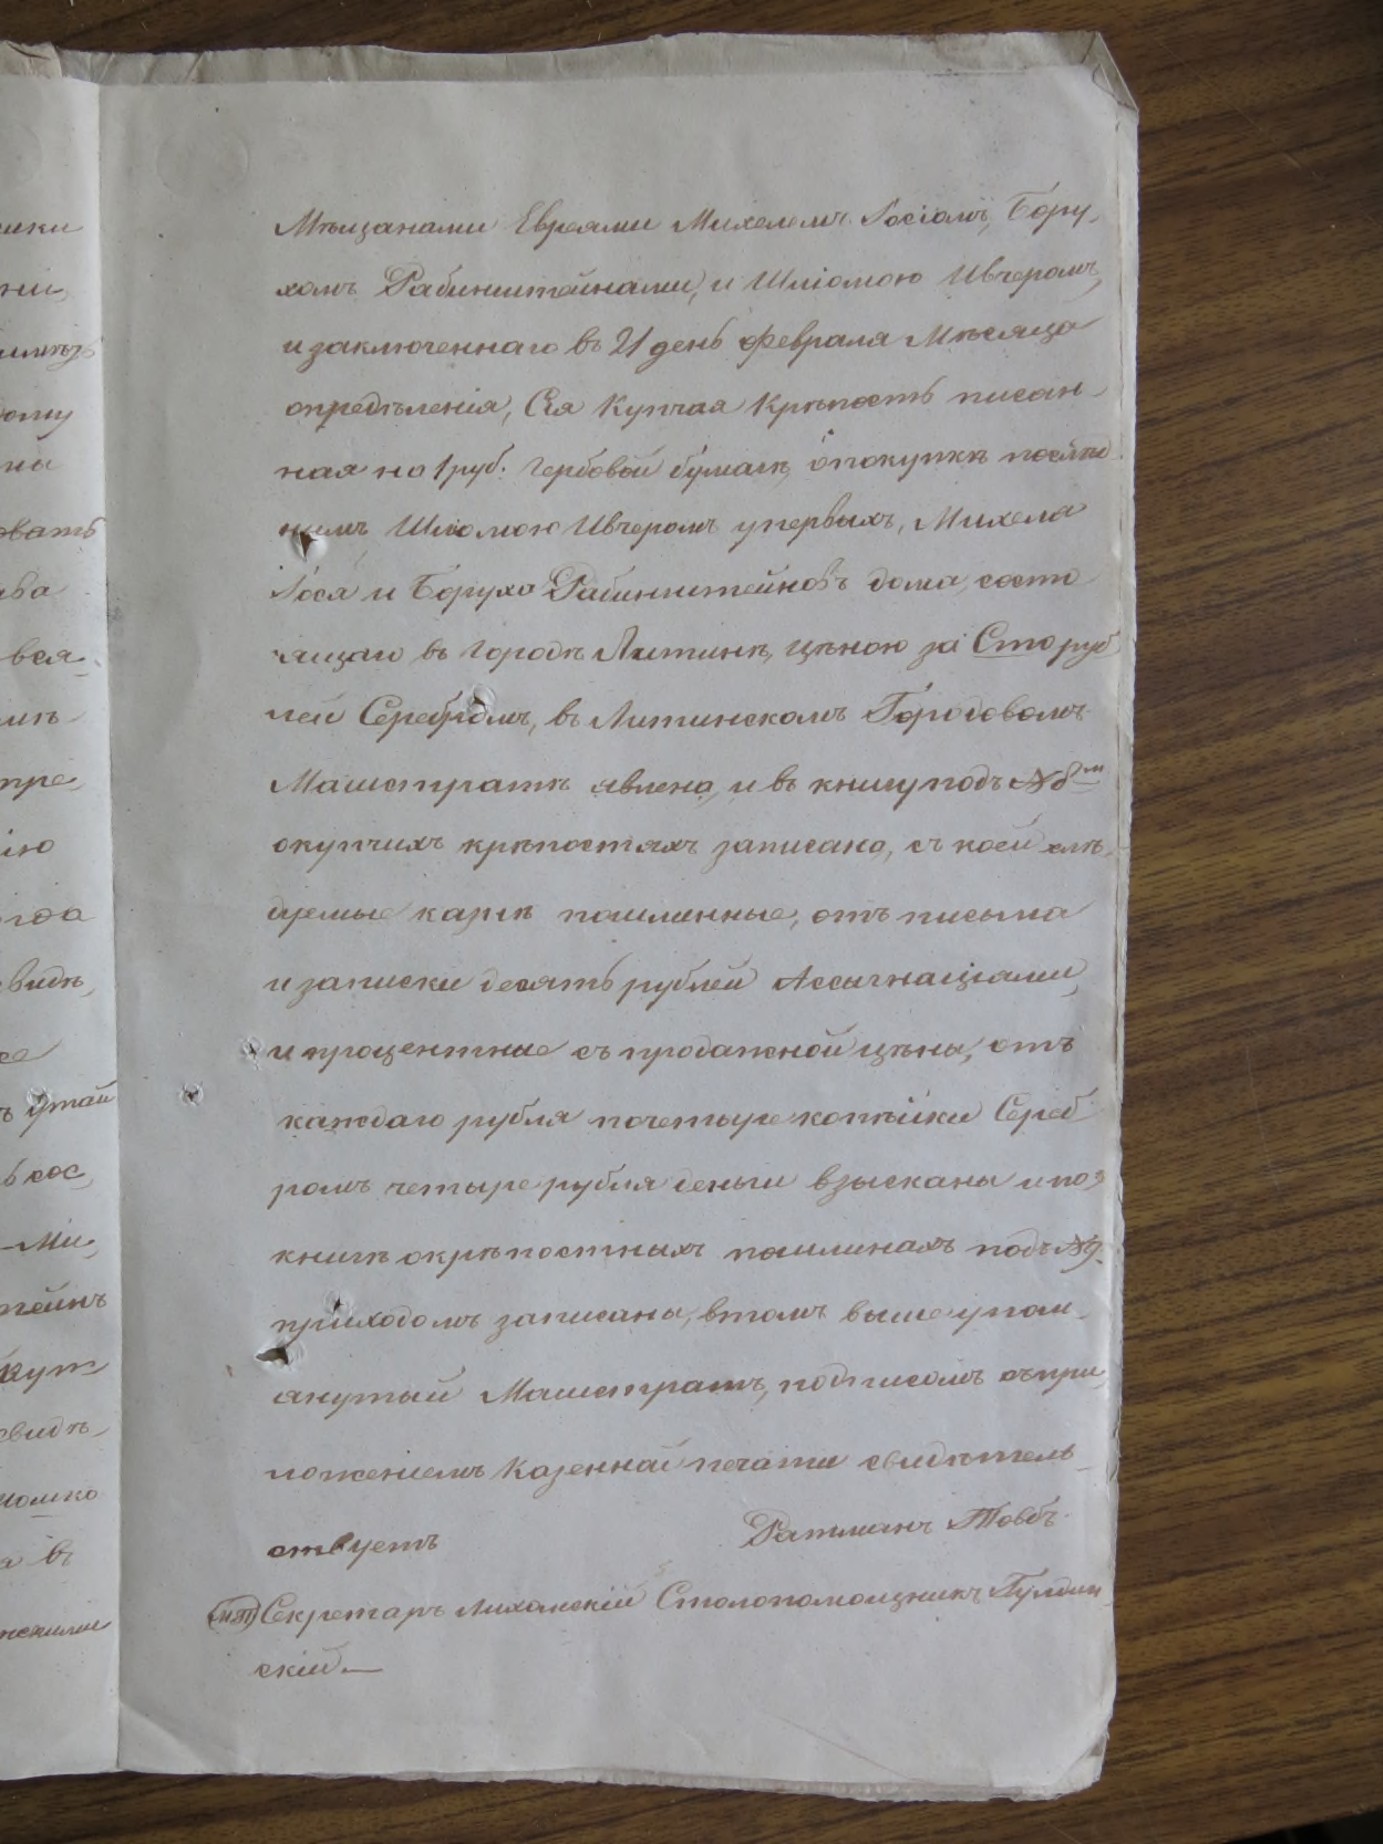 ики
ни,
омъ
ны
овать
ава
вся
мѣ
пре,
ію
года
свидѣ,
се
ъ утай
ь сос,
Ми,
тейнъ
куп
свидѣ,
в въ
Мѣщанами Евреями Михелемъ Іосіомъ, Бору-
хомъ Рабинштейнами, и Шліомою Ивчеромъ,
и заключеннаго въ 21 день февраля Мѣсяца
опредѣленія, Сія Купчая Крѣпость писан-
ная на 1 руб. гербовой бумагѣ, о покупкѣ послѣд
нимъ Шліомою Ивчеромъ у первыхъ, Михеля
Іося и Боруха Рабинштейновъ дома, состо
ящаго въ городѣ Литинѣ, цѣною за Сто руб
лей Серебромъ, въ Литинскомъ Городовомъ
Магистратѣ явлена, и въ книгу подъ №
о купчихъ крѣпостяхъ записана, съ коей слѣ,
дуемые казнѣ пошлинные, отъ письма
и записки десять рублей Ассигнаціями,
и процентные съ продажной цѣны, отъ
каждаго рубля по четыре копѣйки Сереб
ромъ четыре рубля деньги взысканы и по
книгѣ о крѣпостныхъ пошлинахъ подъ № 9.
приходомъ записаны, в томъ вышеупом-
янутый Магистратъ, подписомъ съ при,
ложеніемъ Казенной печати свидѣтель-
ствуетъ
Ратманъ Товбъ.
(М.П.) Секретарь Лиханскій Столопомощникъ Гулдин
скій.—